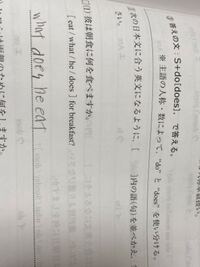 ③答えの文: S+do[does]. で答える。
※ 主語の人称・数によって，"do" と "does" を使い分ける。
次の日本文に合う英文になるように，[ ]内の語(句)を並べかえ
さい。
(1) 彼は朝食に何を食べますか。
[ eat / what / he / does ] for breakfast?
what does he eat